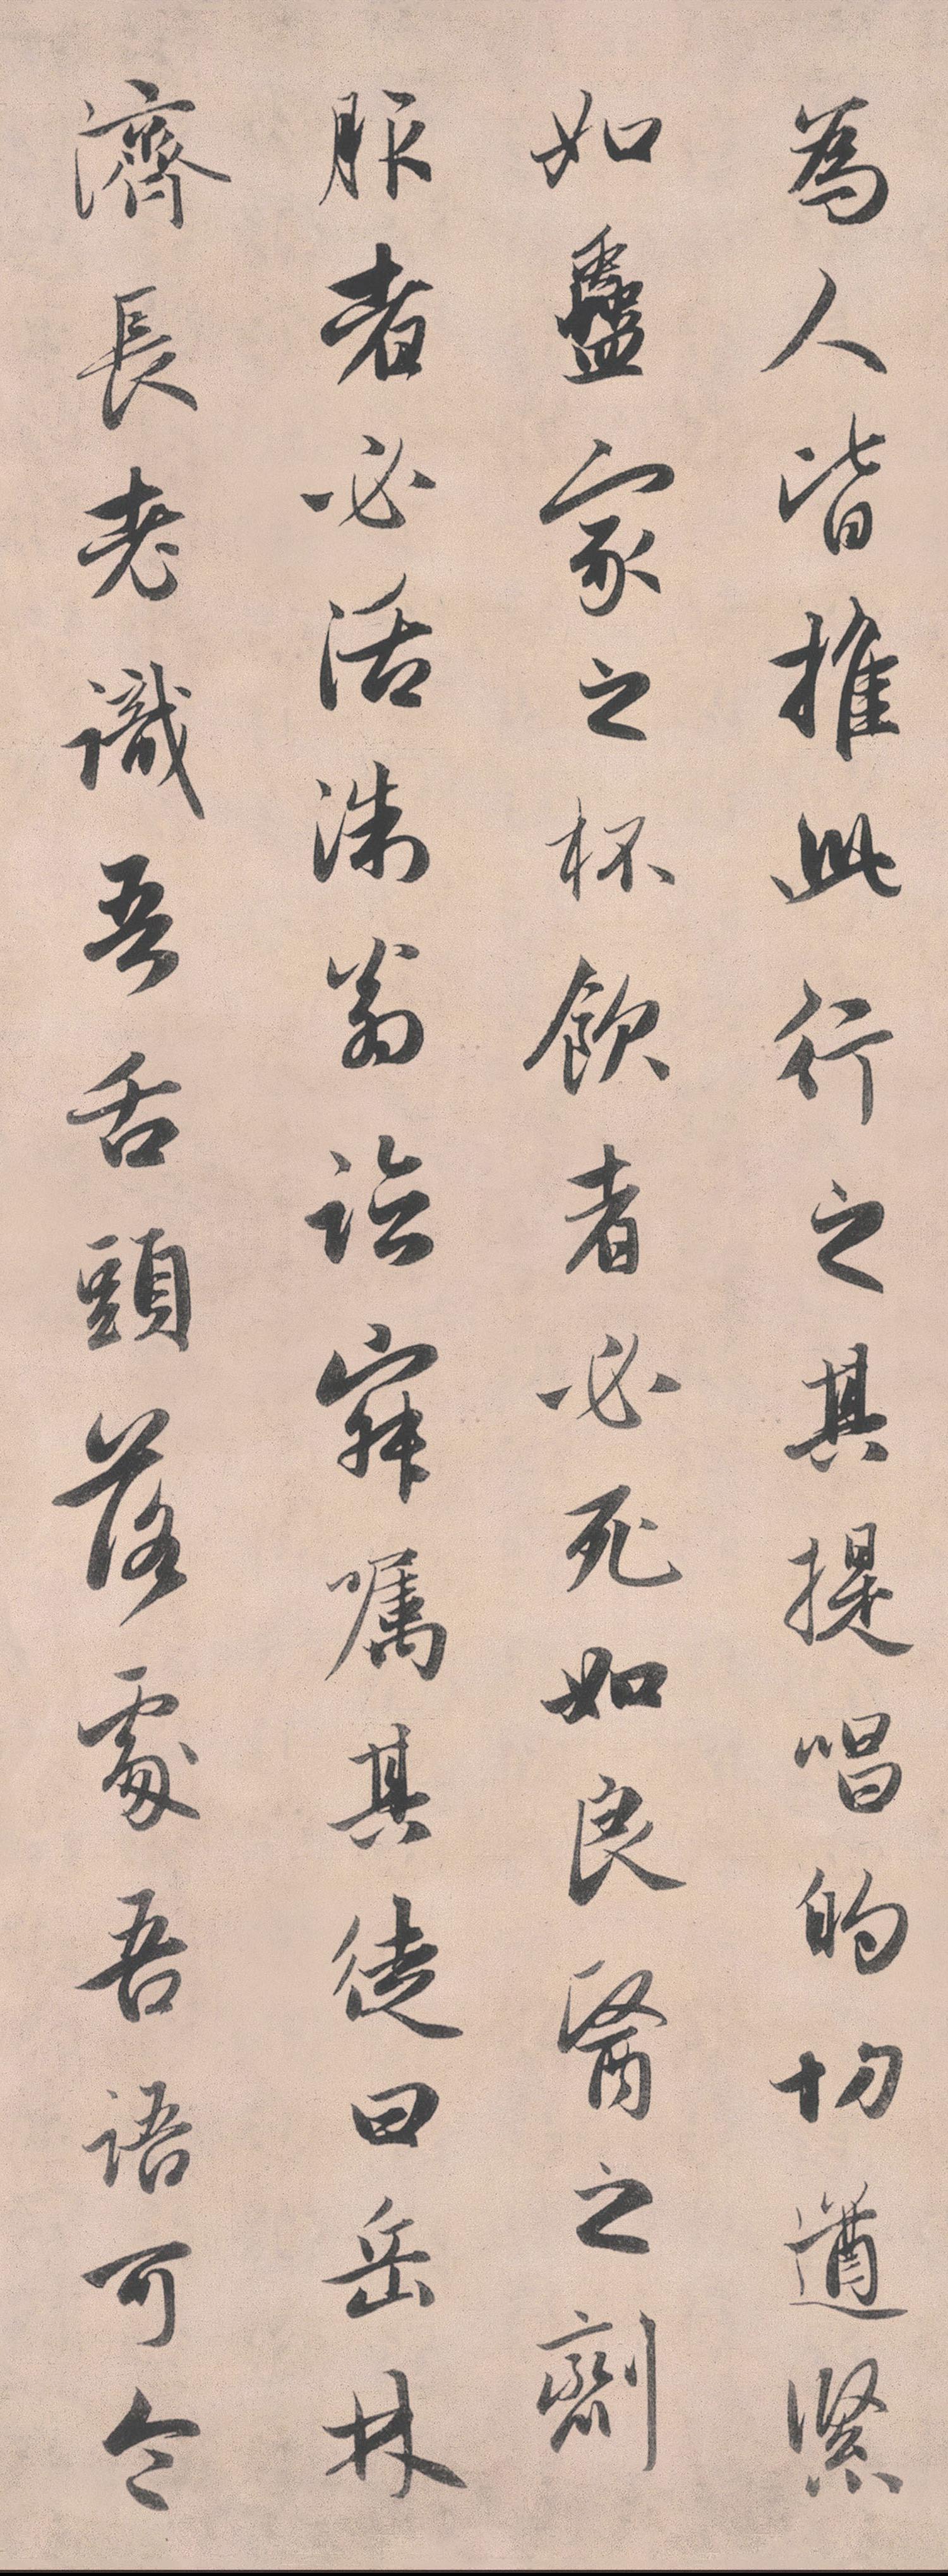 為人皆推此行之其提唱的切遒緊
如蠱家之杯飲者必死如良醫之劑
服者必活洙翁嘱其徒曰岳林
濟長老識吾舌頭落處吾語可令